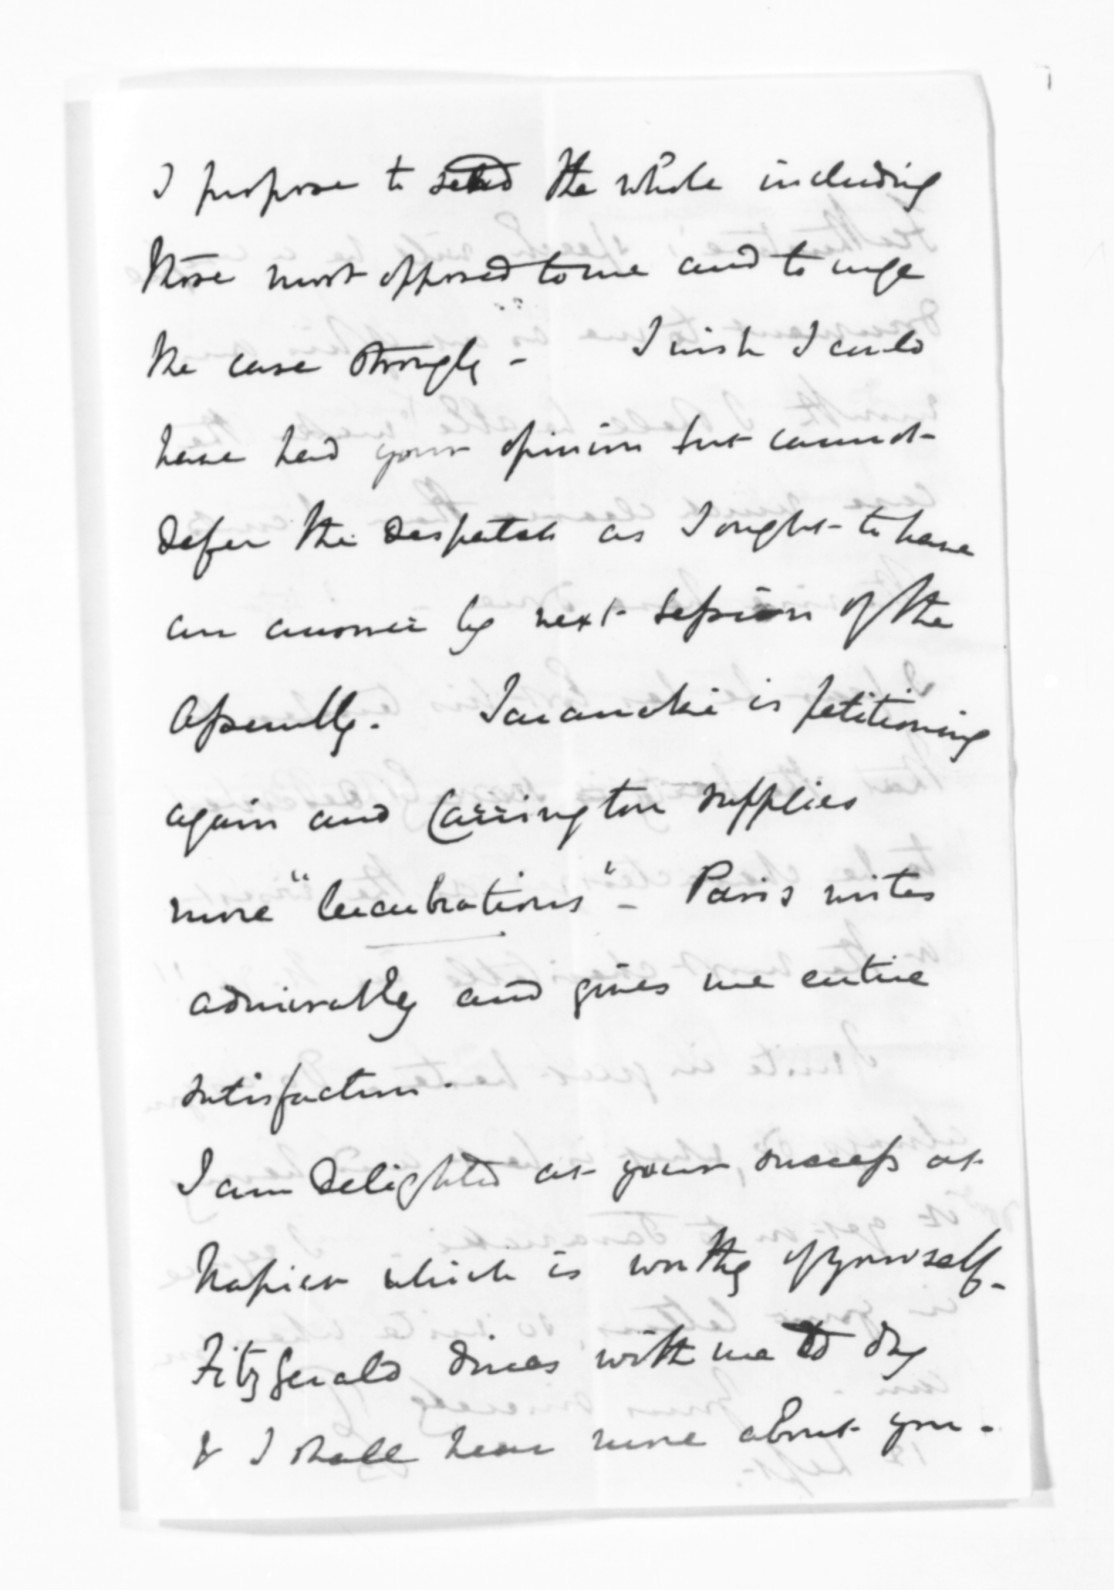 I propose to send the whole including
those most opposed to me and to urge
the case strongly - I wish I could
have had your opinion but cannot
defer the despatch as I ought to have
an answer by next Session of the
Assembly. Taranaki is petitioning
again and Carrington supplies
more "lucubrations" - Paris writes
admirably and gives me entire
satisfaction.
I am delighted at your success at
Napier which is worthy of yourself -
FitzGerald dines with me to day
& I shall hear more about you -